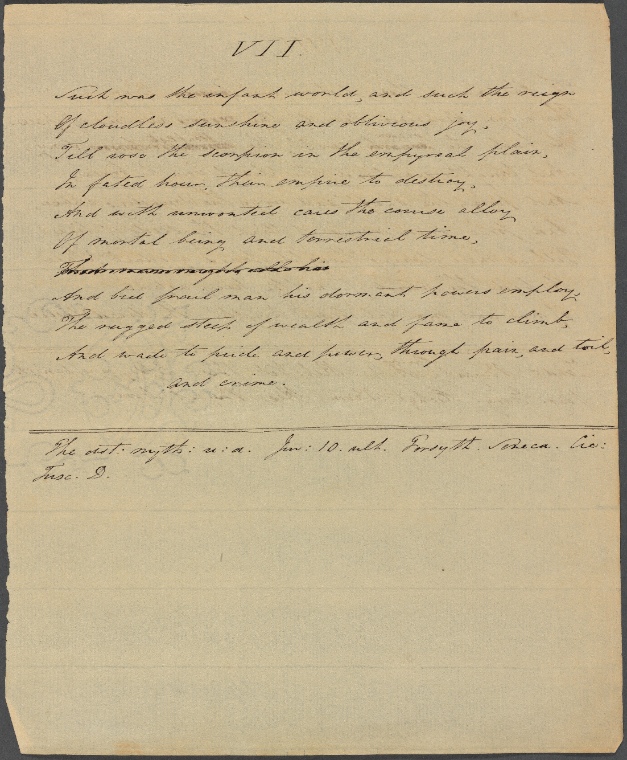 VII.
Such was the infant world, and such the reign
Of cloudless sunshine and oblivious joy,
Till rose the scorpion in the empyreal plain,
In fated hour, their empire to destroy,
And with unwonted cares the coarse alloy
Of mortal being and terrestrial time,
And bid frail man his dormant powers employ,
The rugged steep of wealth and fame to climb,
And wade to pride and power, through pain, and toil,
and crime.
The ast: myth: u: a. Juv: 10. ult. Forsyth. Seneca. Cic:
Tusc. D.